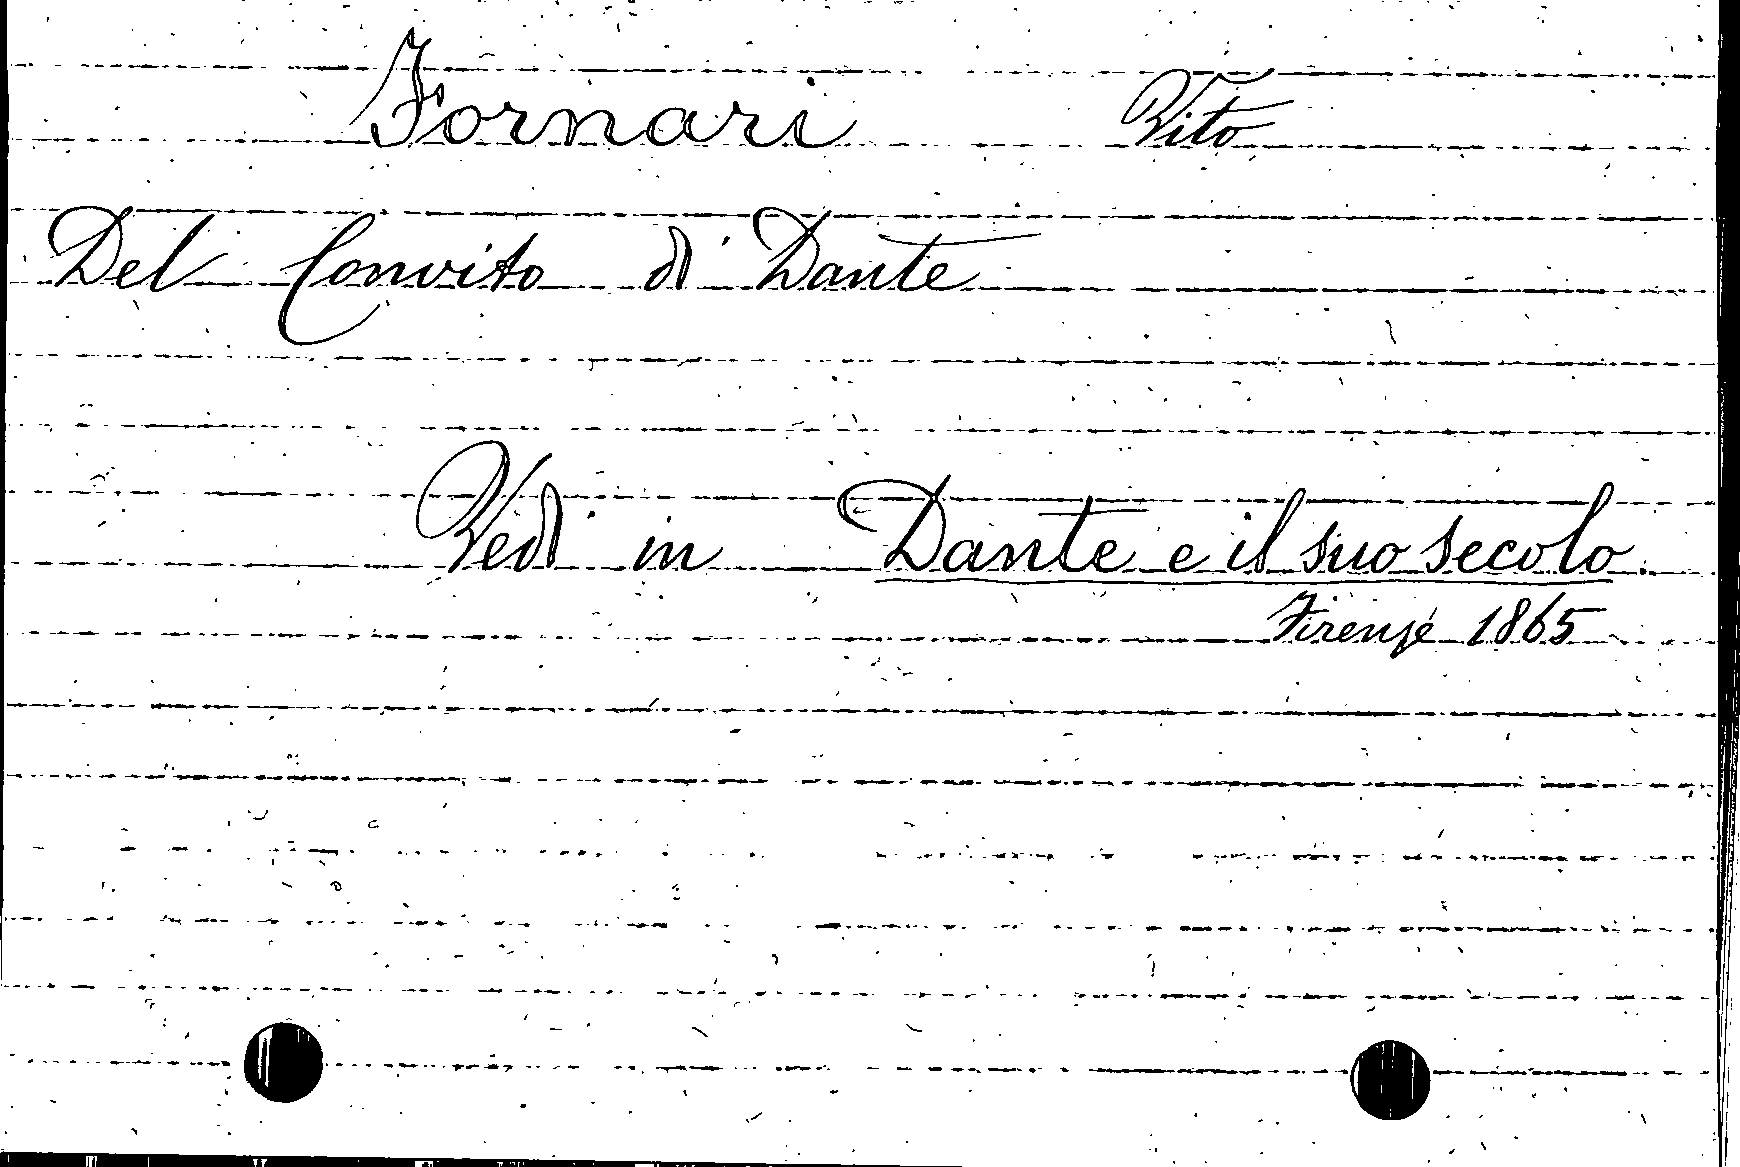 Fornari Vito
Del Convito di Dante
Vedi in Dante e il suo secolo.
Firenze 1865